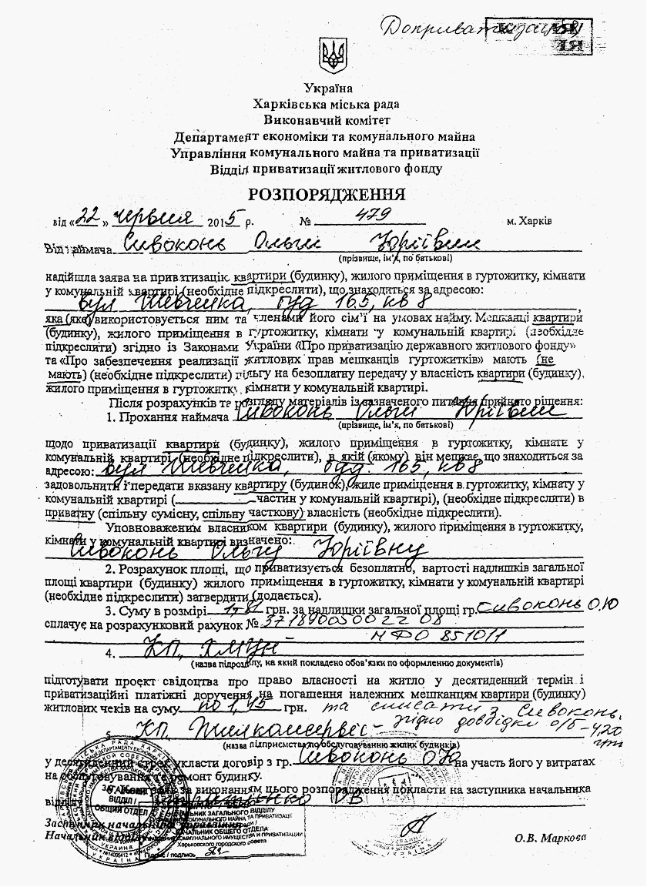 Доприватизація
Україна
Харківська міська рада
Виконавчий комітет
Департамент економіки та комунального майна
Управління комунального майна та приватизації
Відділ приватизації житлового фонду
РОЗПОРЯДЖЕННЯ
від «22» червня 2015 р. № 479 м. Харків
Від наймача Сивоконь Ольги Юріївни
(прізвище, ім'я, по батькові)
надійшла заява на приватизацію квартири (будинку), жилого приміщення в гуртожитку, кімнати
у комунальній квартирі (необхідне підкреслити), що знаходиться за адресою:
вул Шевченка, буд 165, кв 8
яка (яке) використовується ним та членами його сім'ї на умовах найму. Мешканці квартири
(будинку), жилого приміщення в гуртожитку, кімнати у комунальній квартирі (необхідне
підкреслити) згідно із Законами України «Про приватизацію державного житлового фонду»
та «Про забезпечення реалізації житлових прав мешканців гуртожитків» мають (не
мають) (необхідне підкреслити) пільгу на безоплатну передачу у власність квартири (будинку),
жилого приміщення в гуртожитку, кімнати у комунальній квартирі.
Після розрахунків та розгляду матеріалів із зазначеного питання прийнято рішення:
1. Прохання наймача Сивоконь Ольги Юріївни
(прізвище, ім'я, по батькові)
щодо приватизації квартири (будинку), жилого приміщення в гуртожитку, кімнати у
комунальній квартирі (необхідне підкреслити), в якій (якому) він мешкає, що знаходиться за
адресою: вул Шевченка, буд. 165, кв 8
задовольнити і передати вказану квартиру (будинок), жиле приміщення в гуртожитку, кімнату у
комунальній квартирі (________ частин у комунальній квартирі), (необхідне підкреслити) в
приватну (спільну сумісну, спільну часткову) власність (необхідне підкреслити).
Уповноваженим власником квартири (будинку), жилого приміщення в гуртожитку,
кімнати у комунальній квартирі визначено: Сивоконь Ольгу Юріївну
2. Розрахунок площі, що приватизується безоплатно, вартості надлишків загальної
площі квартири (будинку) жилого приміщення в гуртожитку, кімнати у комунальній квартирі
(необхідне підкреслити) затвердити (додається).
3. Суму в розмірі грн. за надлишки загальної площі гр. Сивоконь О.Ю
сплачує на розрахунковий рахунок № 37189005002208
МФО 851011
4. КП,
(назва підрозділу, на який покладено обов'язки по оформленню документів)
підготувати проект свідоцтва про право власності на житло у десятиденний термін і
приватизаційні платіжні доручення на погашення належних мешканцям квартири (будинку)
житлових чеків на суму по 1,45 грн. та списати з Сивоконь
згідно довідки
5. КП Жилкомсервіс
(назва підприємства по обслуговуванню жилих будинків)
у десятиденний строк укласти договір з гр. Сивоконь О.Ю на участь його у витратах
на обслуговування та ремонт будинку.
6. Контроль за виконанням цього розпорядження покласти на заступника начальника
відділу
О.В. Маркова
ЗАГАЛЬНИЙ
ВІДДІЛ
ОБЩИЙ ОТДЕЛ
НАЧАЛЬНИК ЗАГАЛЬНОГО ВІДДІЛУ
НАЧАЛЬНИК ОБЩЕГО ОТДЕЛА
Харьковского городского совета
Підпис / подпись